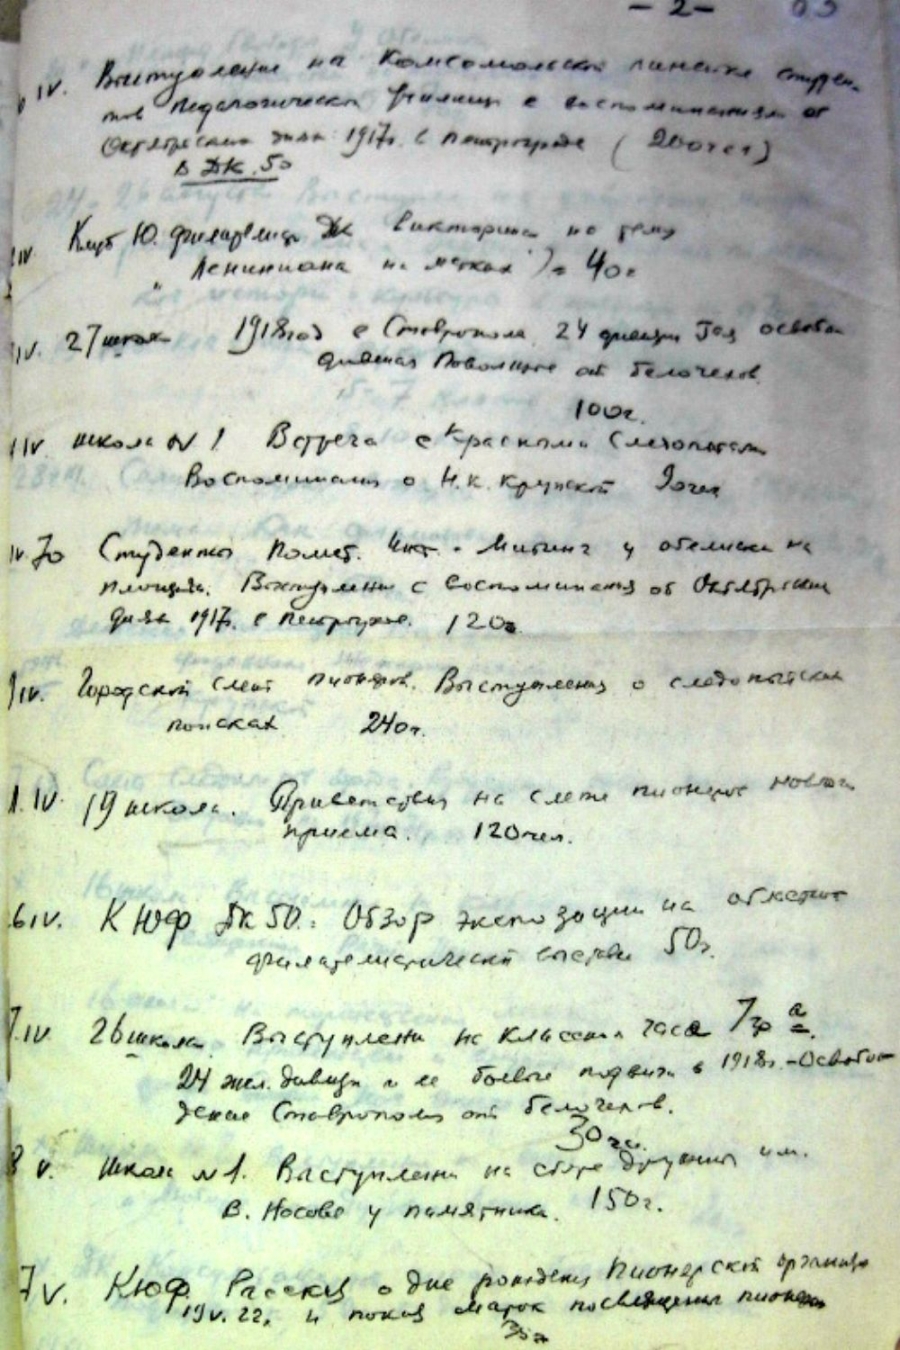 - 2 -
IV. Выступление на Комсомольской линейке студен-
тов педагогическ училища с воспоминаниями об
Октябрьских днях 1917г. в Петрограде (200чел)
в ДК. 50
IV Клуб Ю. филателиста ДК Викторина на тему
"Лениниана на марках") = 40ч
IV. 27 школа 1918 год в Ставрополе 24 дивизия Гая освобо
дившая Поволжье от белочехов
100ч.
IV школа N 1 Встреча с Красными Следопытами
Воспоминания о Н.К. Крупской 90чел
IV. 70 Студенты Полит. Инт. - Митинг у обелиска на
площади. Выступление с воспоминания об Октябрьских
днях 1917г. в Петрограде. 120ч
9 IV. Городской слет пионеров. Выступления о следопытских
поисках 240ч.
1. IV. 19 школа. Приветствия на слете пионеров нового
приема. 120чел.
6 IV. КЮФ ДК 50. Обзор экспозиции на областной
филателистической выставке 50ч.
7. IV 26 школа. Выступлени на классном часе 7гр а.
24 жел. дивизи и ее боевые подвиги в 1918г. - Освобож
дение Ставрополя от белочехов.
30чел.
8 V. школа N 1. Выступлени на сборе дружины им.
В. Носова у памятника. 150ч.
7 V. КЮФ. Рассказ о дне рождения Пионерской организац
19 V. 22г. и показ марок посвящения пионерам
35ч